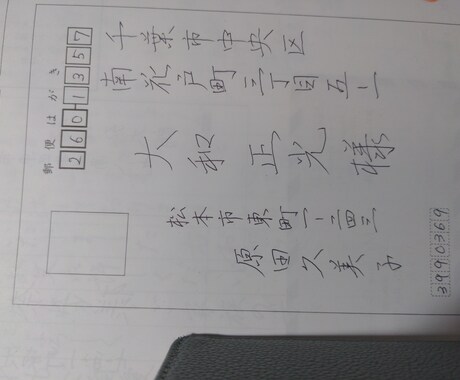 郵便はがき
260-1357
千葉市中央区
南花戸町三丁目五ー一
大和 正光 様
松本市東町一ー二四三
原田久美子
3990369